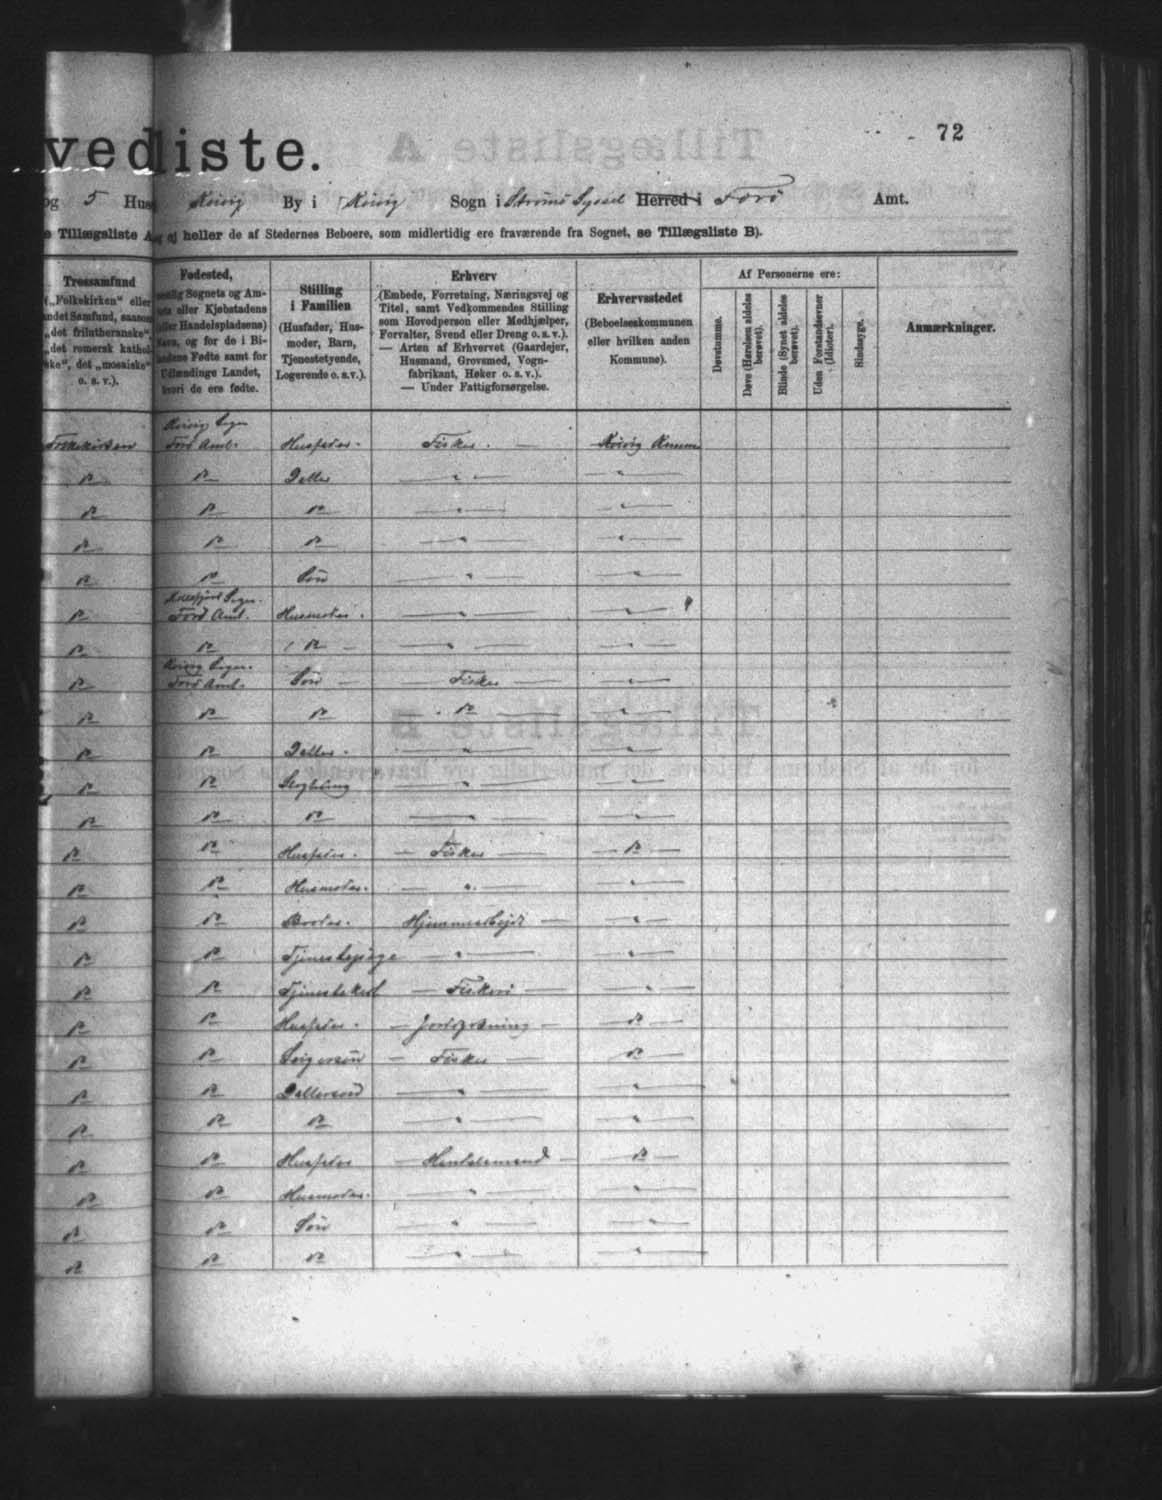 vedliste.
72
og 5 Huse Kvivig By i Kvivig Sogn i Strømø Syssel Herred i Færø Amt.
e Tillægsliste A, og ej heller de af Stedernes Beboere, som midlertidig ere fraværende fra Sognet, se Tillægsliste B).
Trossamfund
(„Folkekirken" eller
andet Samfund, saasom
„det frilutheranske",
„det romersk kathol-
ske", det „mosaiske"
o. s. v.).
Fødested,
nemlig Sognets og Am-
ets eller Kjøbstadens
(eller Handelspladsens)
Navn, og for de i Bi-
landene Fødte samt for
Udlændinge Landet,
hvori de ere fødte.
Stilling
i Familien
(Husfader, Hus-
moder, Barn,
Tjenestetyende,
Logerende o.s.v.).
Erhverv
(Embede, Forretning, Næringsvej og
Titel, samt Vedkommendes Stilling
som Hovedperson eller Medhjælper,
Forvalter, Svend eller Dreng o. s. v.).
— Arten af Erhvervet (Gaardejer,
Husmand, Grovsmed, Vogn-
fabrikant, Høker o. s. v.).
— Under Fattigforsørgelse.
Erhvervsstedet
(Beboelseskommunen
eller hvilken anden
Kommune).
Af Personerne ere:
Døvstumme.
Døve (Hørelsen aldeles
berøvet).
Blinde (Synet aldeles
berøvet).
Uden Forstandsevner
(Idioter).
Sindssyge.
Anmærkninger.
Kvivig Sogn
Folkekirken Færø Amt. Husfader. Fisker. — Kvivig Komm
do do Datter — " — — " —
do do do — " — — " —
do do do — " — — " —
do do Søn — " — — " —
Kollefjord Sogn.
do Færø Amt. Husmoder. — " — — " —
do do do — — " — — " —
Kvivig Sogn.
do Færø Amt. Søn — — Fisker — — " —
do do do — do — — " —
do do Datter. — " — — " —
do do Slegtning — " — — " —
do do do — " — — " —
do do Husfader. — Fisker — — do —
do do Husmoder. — " — — " —
do do Hjemmearbejde — — " —
do do Tjenestepige — " — — " —
do do Tjenestekarl — Fiskeri — — " —
do do Husfader. — Jorddyrkning — — do —
do do — Fisker — — do —
do do Dattersøn — " — — " —
do do do — " — — " —
do do Husfader — Handelsmand — — do —
do do Husmoder. — " — — " —
do do Søn — " — — " —
do do do — " — — " —